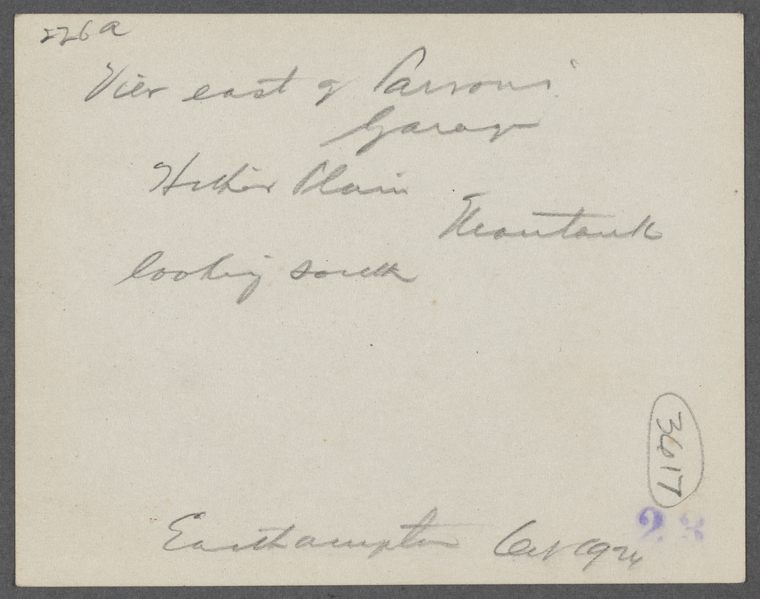 226a
View east of Parsons'
Garage
Hither Plain
Montauk
looking south
3617
Easthampton Oct 1924